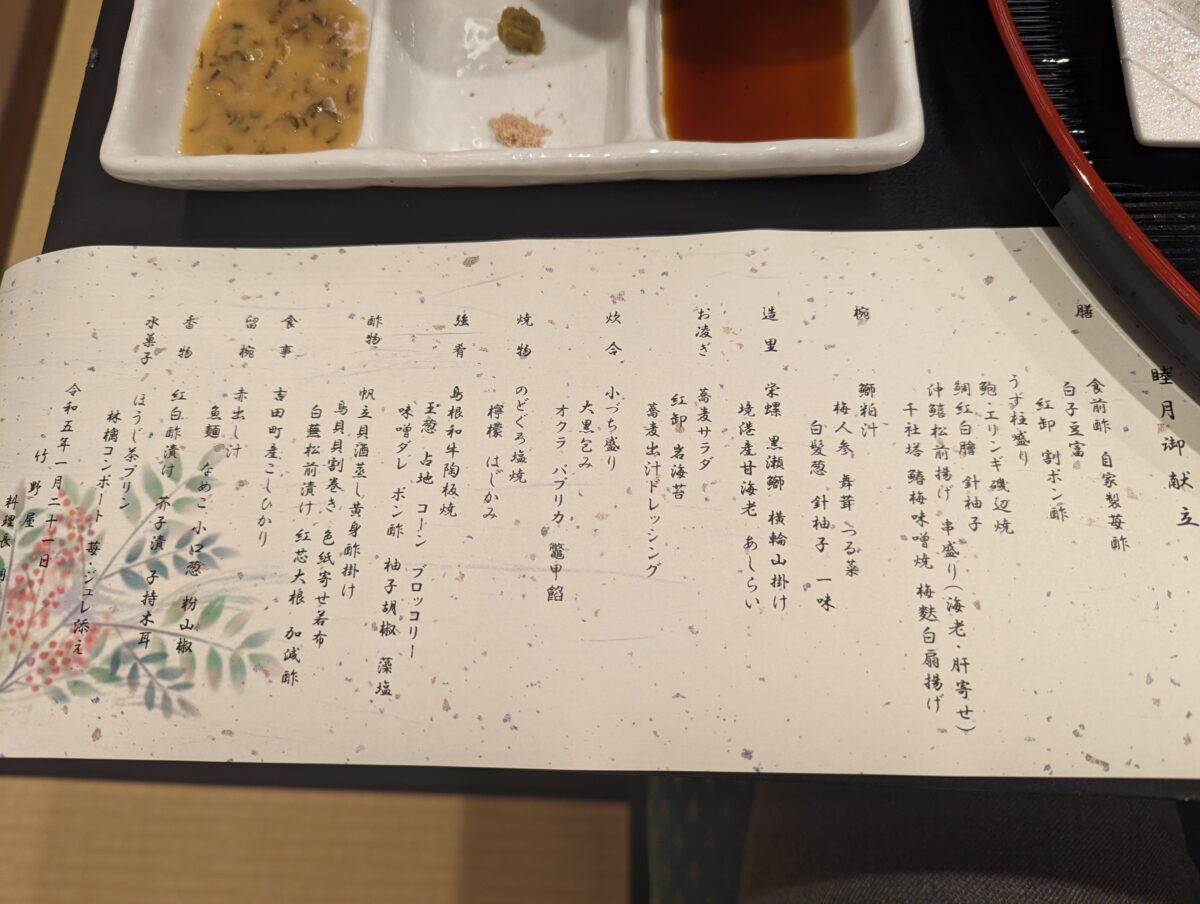 睦月御献立
膳
食前酢 自家製苺酢
白子豆富
紅卸 割ポン酢
うず柱盛り
鮑・エリンギ磯辺焼
鯛紅白膾 針柚子 串盛り(海老・肝寄せ)
沖鱚松前揚げ
千社塔 鰆梅味噌焼 梅麩白扇揚げ
椀
鰤粕汁
梅人参 舞茸 つる菜
白髪葱 針柚子 一味
造里
栄螺 黒瀬鰤 横輪山掛け
境港産甘海老 あしらい
お凌ぎ
蕎麦サラダ
紅卸 岩海苔
蕎麦出汁ドレッシング
炊合
小づち盛り
大黒包み
オクラ パプリカ 鼈甲餡
焼物
のどぐろ塩焼
檸檬 はじかみ
強肴
島根和牛陶板焼
玉葱 占地 コーン ブロッコリー
味噌ダレ ポン酢 柚子胡椒 藻塩
酢物
帆立貝酒蒸し黄身酢掛け
鳥貝貝割巻き 色紙寄せ若布
白蕪松前漬け 紅芯大根 加減酢
食事
吉田町産こしひかり
留椀
赤出し汁
魚麺 なめこ 小口葱 粉山椒
香物
紅白酢漬け 芥子漬 子持木耳
水菓子
ほうじ茶プリン
林檎コンポート 苺・ジュレ添え
令和五年一月二十一日
竹野屋
料理長